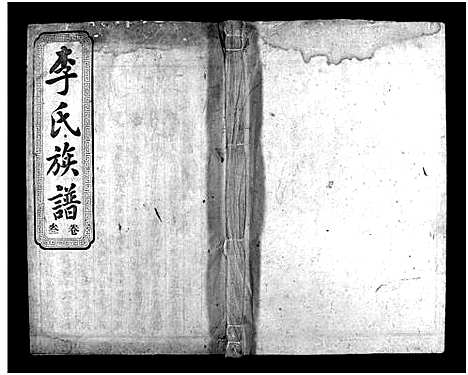 李氏族譜
卷叁